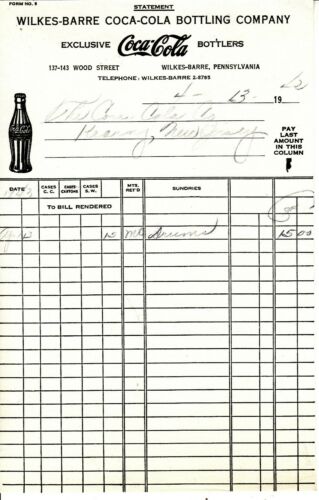 FORM NO. 5
STATEMENT
WILKES-BARRE COCA-COLA BOTTLING COMPANY
EXCLUSIVE Coca-Cola BOTTLERS
137-143 WOOD STREET WILKES-BARRE, PENNSYLVANIA
TELEPHONE: WILKES-BARRE 2-8765
4- 13- 19
The Coca Cola Co
Kearny, New Jersey
PAY LAST AMOUNT IN THIS COLUMN
DATE CASES C.C. CASES CARTONS CASES S.W. MTS. RET'D SUNDRIES
TO BILL RENDERED
15 Mt Drums 15 00